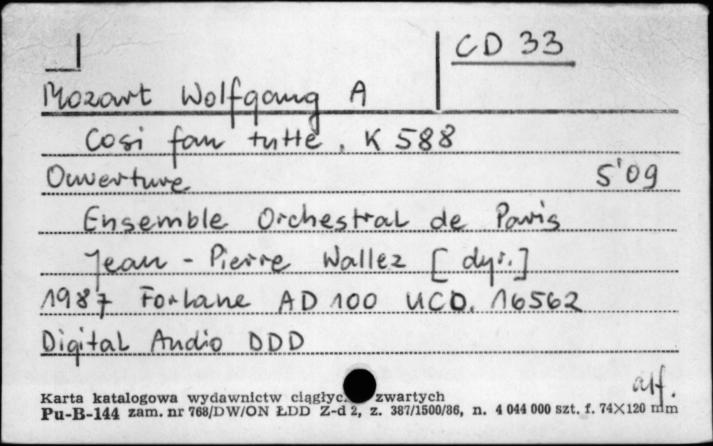 CD 33
Mozart Wolfgang A
Cosi fan tutte. K 588
Ouverture 5'09
Ensemble Orchestral de Paris
Jean - Pierre Wallez [dyr.]
1987 Forlane AD 100 UCD. 16562
Digital Audio DDD
alf.
Karta katalogowa wydawnictw ciągłyc zwartych
Pu-B-144 zam. nr 768/DW/ON ŁDD Z-d 2, z. 387/1500/86, n. 4 044 000 szt. f. 74×120 mm